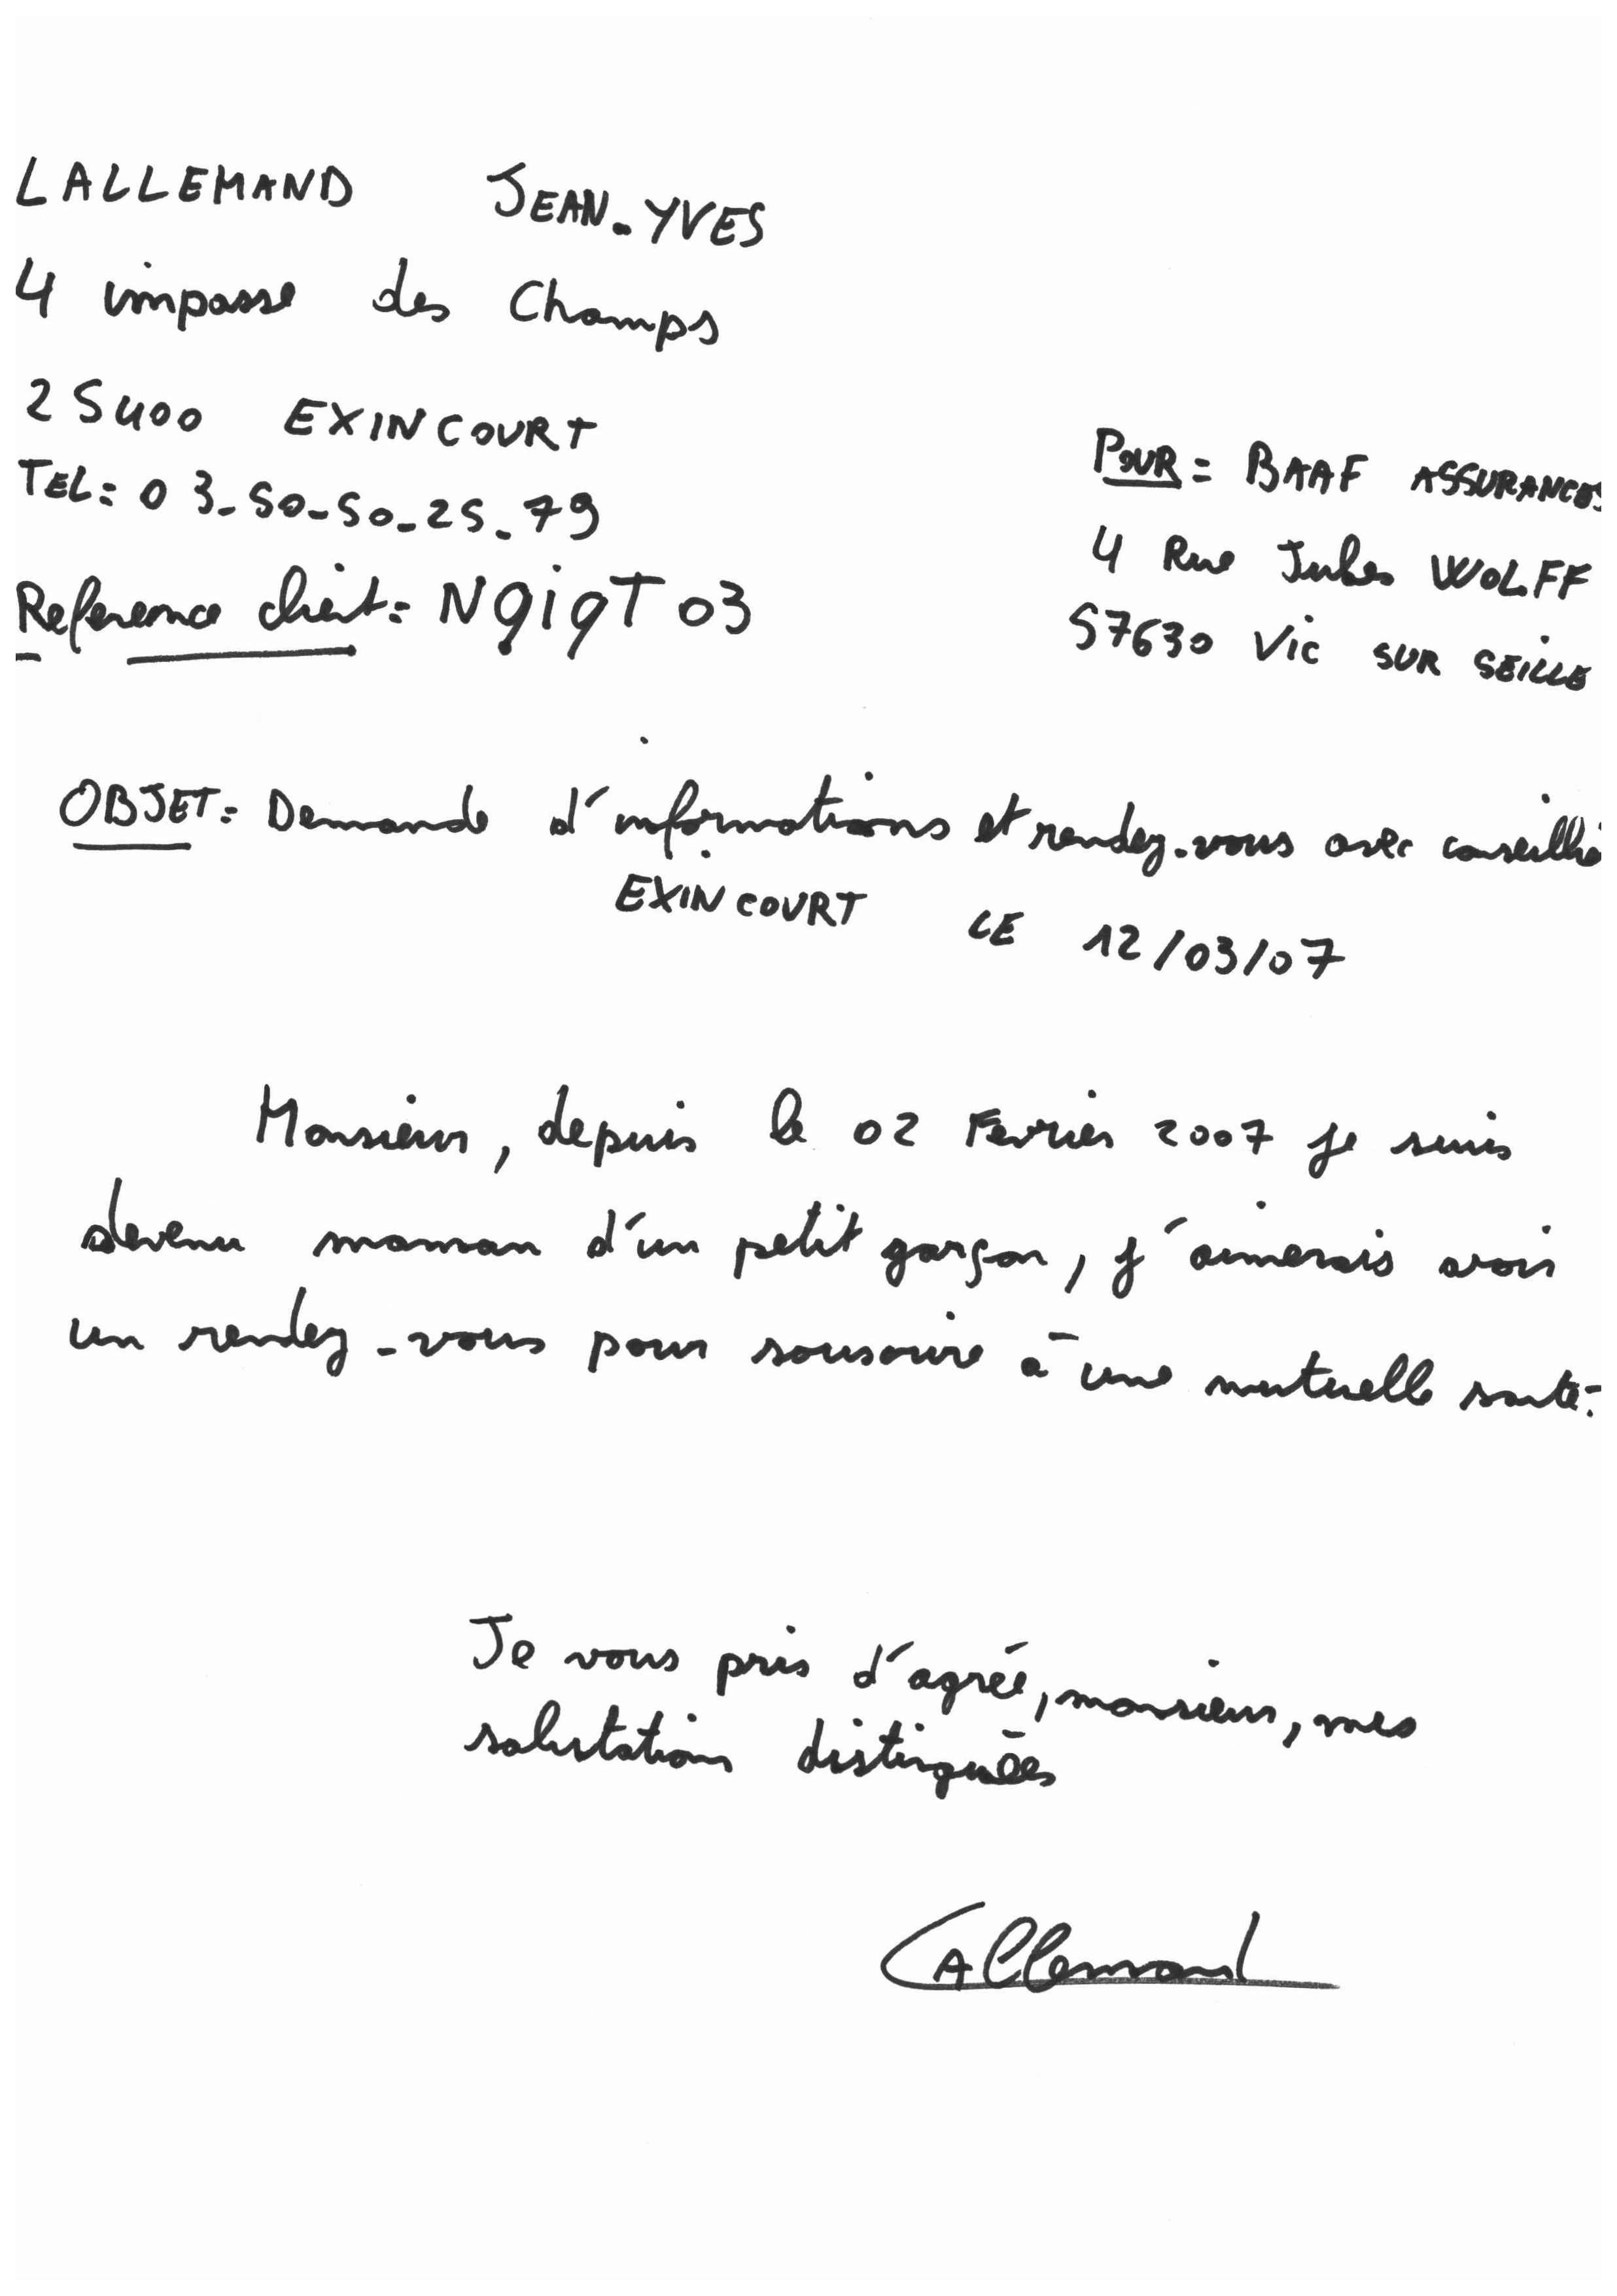 LALLEMAND JEAN-YVES
4 impasse des Champs
25400 EXINCOURT
TEL: 03-50-50-25-79
Reference client: NQIQT03
POUR = BAAF ASSURANCES
4 Rue Jules WOLFF
57630 Vic SUR SEILLE
OBJET: Demande d'informations et rendez-vous avec
EXINCOURT LE 12/03/07
Monsieur, depuis le 02 Fevrier 2007 je suis
devenu maman d'un petit garçon, j'aimerais avoir
un rendez-vous pour souscrire à une mutuelle santé.
Je vous pris d'agrée, monsieur, mes
salutations distinguées
Lallemand